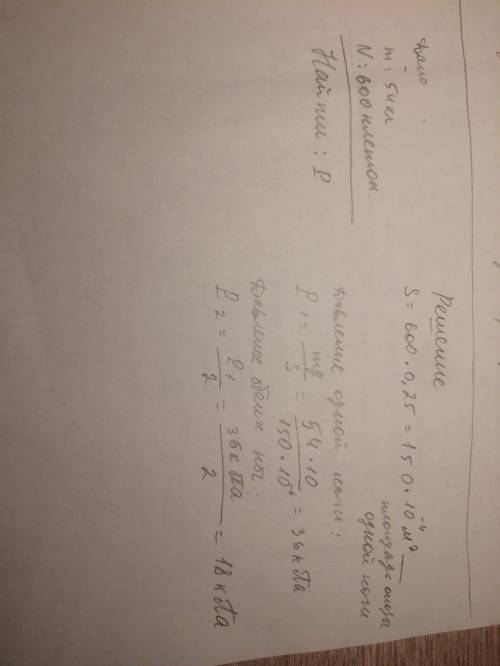 Дано
m: 54 кг
N: 600 клеток
Найти: P
Решение
S = 600 · 0,25 = 150 · 10⁻⁴ м²
площадь опоры
одной ноги
Давление одной ноги:
P₁ = mg/S = 54 · 10/150 · 10⁻⁴ = 36 кПа
Давление обеих ног:
P₂ = P₁/2 = 36 кПа/2 = 18 кПа